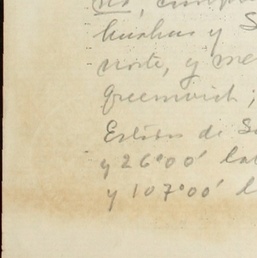 no,
y S
norte, y me
Greenwich;
Estado de So
y 26°00' lat
y 107°00' l